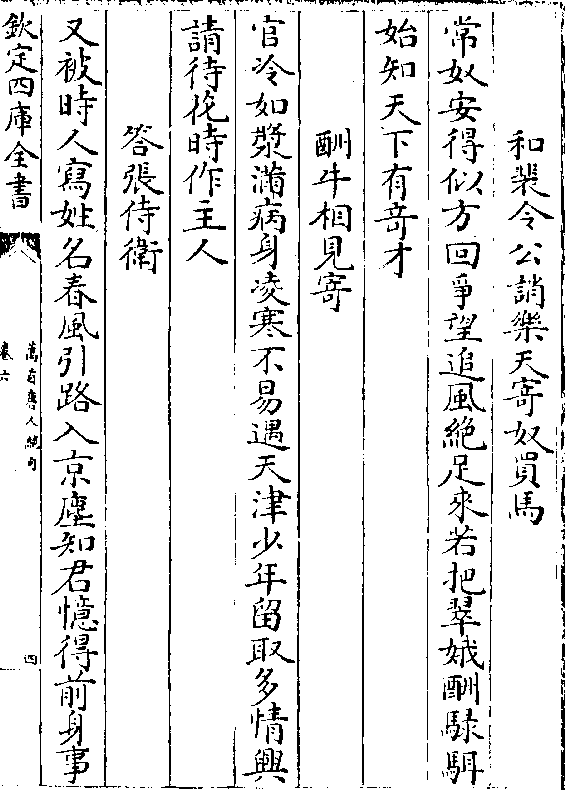 和裴令公誚樂天寄奴買馬
常奴安得似方回爭望追風絶足來若把翠娥酬騄駬
始知天下有竒才
酬牛相見寄
官冷如漿滿病身凌寒不易遇天津少年留取多情興
請待花時作主人
答張侍衛
又被時人寫姓名春風引路入京塵知君憶得前身事
欽定四庫全書
萬首唐人絶句
卷六
四